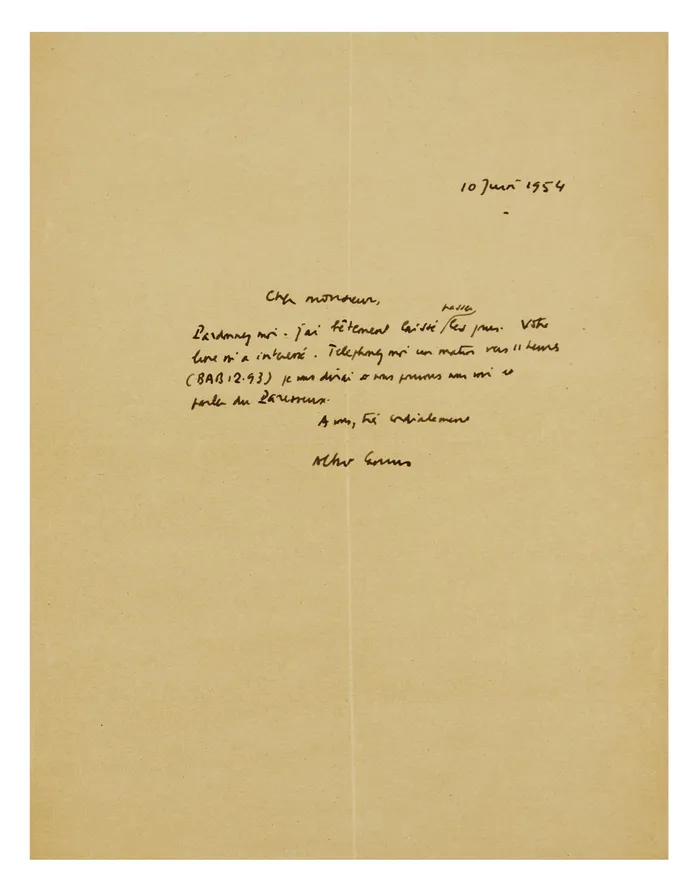 10 Juin 1954
Cher monsieur,
passer
Pardonnez moi. j'ai bêtement laissé les jours. Votre
livre m'a intéressé. Telephonez moi un matin vers 11 heures
(BAB 12.93) je vous dirai où nous pouvons nous voir et
parler du Paresseux.
A vous, très cordialement
Albert Camus